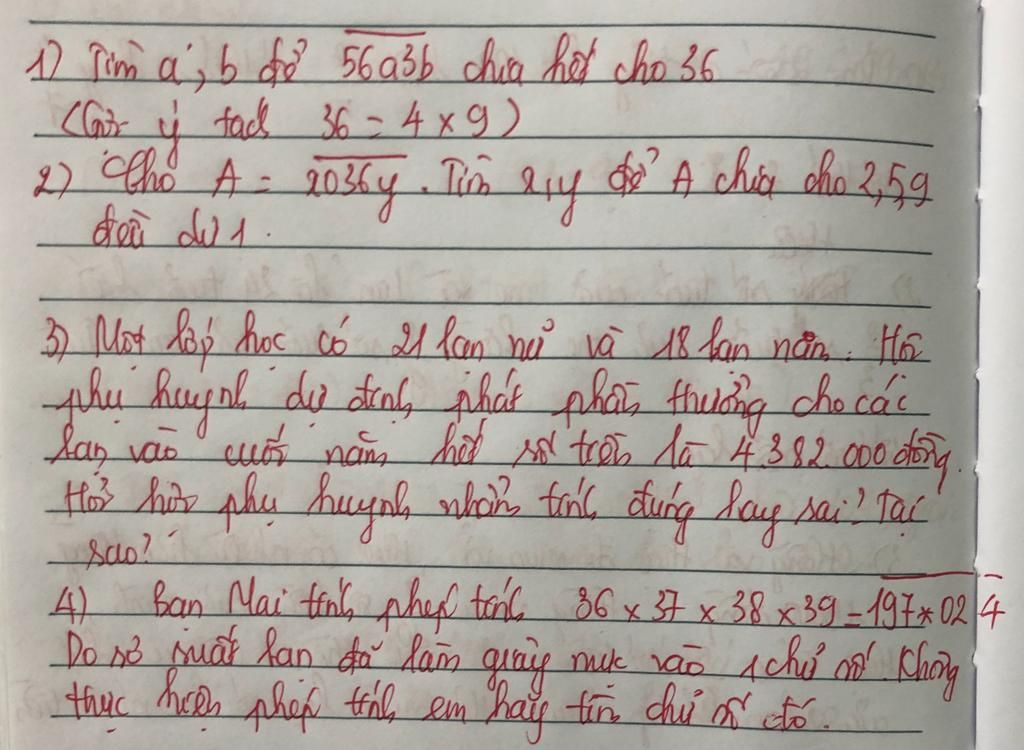 1) Tìm a, b để 56a3b chia hết cho 36
(Gợi ý tách 36 = 4 x 9)
2) Cho A = x036y. Tìm x, y để A chia cho 2,5,9
đều dư 1.
3) Một lớp học có 21 bạn nữ và 18 bạn nam. Hội
phụ huynh dự định phát phần thưởng cho các
bạn vào cuối năm hết số tiền là 4.382.000 đồng.
Hỏi hội phụ huynh nhẩm tính đúng hay sai? Tại
sao?
4) Bạn Mai tính phép tính 36 x 37 x 38 x 39 = 197*024
Do sơ suất bạn đã làm giây mực vào 1 chữ số. Không
thực hiện phép tính em hãy tìm chữ số đó.